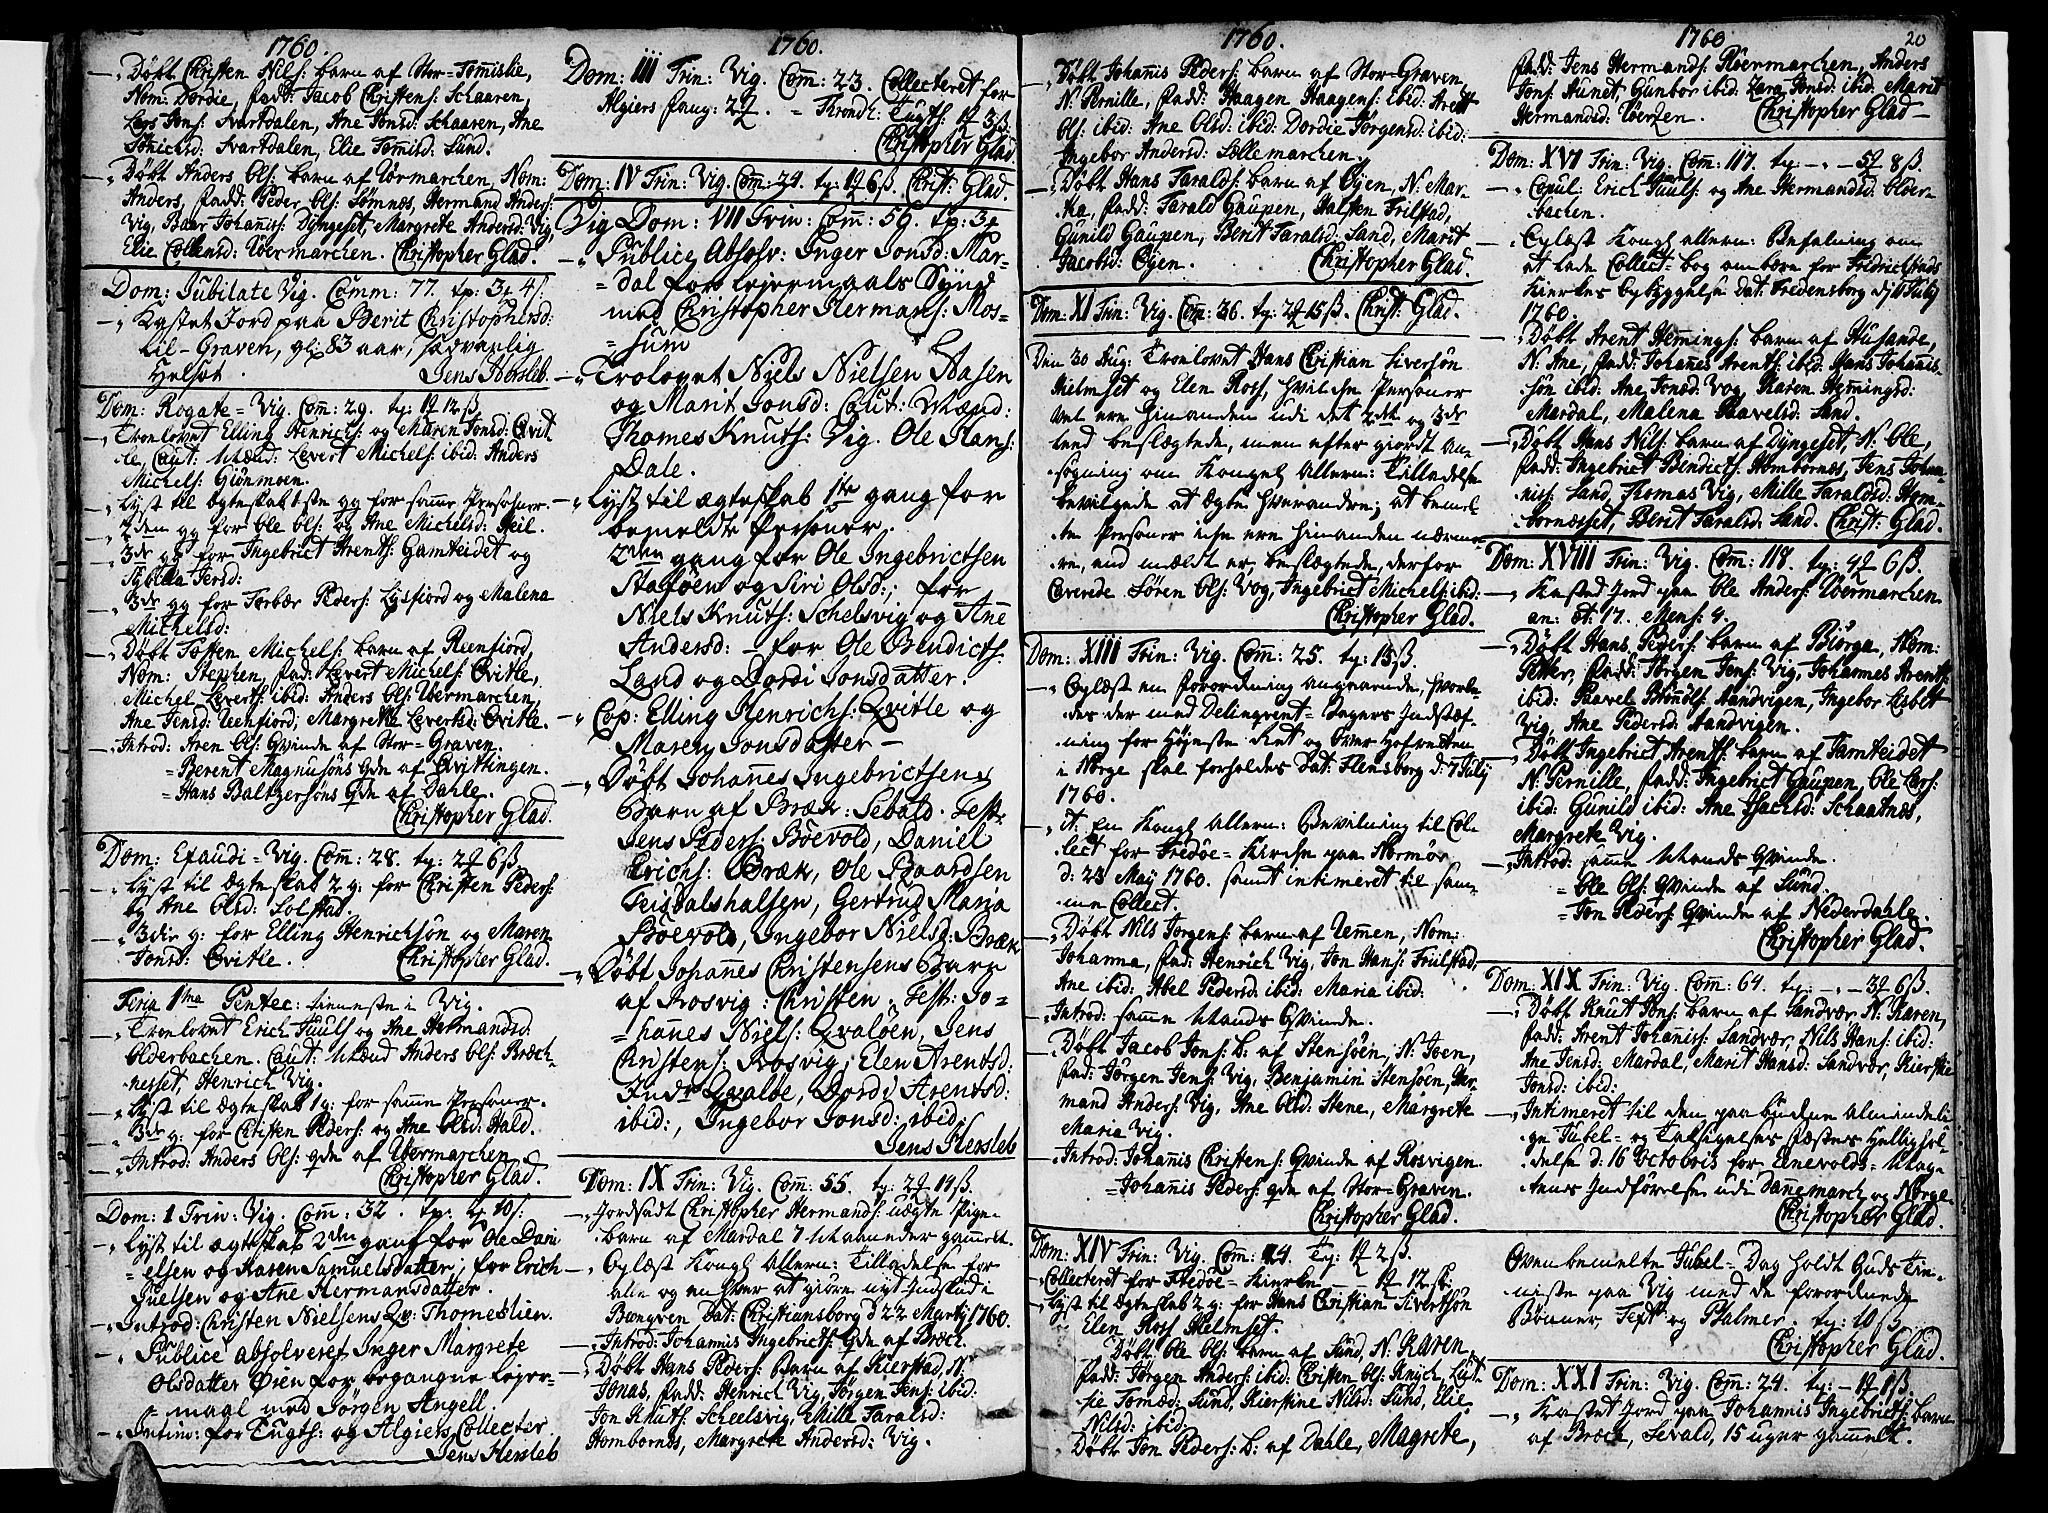 1760.
—„ Døbt Christen Nils: barn af Stor-Tømislie,
Nom: Dordie, fadd: Jacob Christens: Schaaren,
Lars Jons: Svartdalen, Ane Jonsd: Schaaren, Ane
Svartdalen, Elie Tomisd: Sund.
—„ Døbt Anders Ols: barn af Uørmarchen, Nom:
Anders, fadd: Peder Ols: Sømnæs, Hermand Anders:
Vig, Baar Johanis: Dyngeset, Margrete Andersd: Vig,
Elie Uørmarchen. Christopher Glad.
Dom: Jubilate Vig. Comm: 77. tp: 3 ƺ 4 ß.
—„ Kastet Jord paa Berit Christophersd:
Lil-Graven, gl: 83 aar, sædvanlig
Helsot. Jens Hersleb.
Dom: Rogate = Vig. Com: 29. tp: 12 ß
—„ Troelovet Elling Henrichs: og Maren Jonsd: Qvit
le, Caut: Mænd: Levert Michels: ibid: Anders
Michels: Giønmoen.
—„ Lyst til ægteskab 1ste gg for samme Personer.
—„ 2den gg for Ole Ols: og Ane Michelsd: Heil.
—„ 3die gg for Ingebrict Arents: Gamteidet og
Sybilla Jensd:
—„ 3die gg for Torbær Peders: Lysfiord og Malena
Michelsd:
—„ Døbt Joften Michels: barn af Reenfiord,
Nom: Stephen, fad: Levert Michels: Qvitle,
Michel Leverts: ibid: Anders Ols: Uørmarchen,
Ane Jensd: Reenfiord, Margrethe Levertsd: Qvitle.
—„ Introd: Aren Ols: Qvinde af Stor-Graven.
= Berent Magnusøns Qde af Qvittingen.
= Hans Baltzersøns Qde af Dahle.
Christopher Glad.
Dom: Exaudi = Vig. Com: 28. tp: 2 6 ß.
—„ Lyst til ægteskab 2 g: for Christen Peders:
og Ane Olsd: Solstad.
—„ 3die g: for Elling Henrichsøn og Maren
Jonsd: Qvitle. Christopher Glad.
Feria 1ma Pentec: tieneste i Vig.
—„ Troelovet Erich Juuls: og Ane Hermandsd:
Olderbachen. Caut: Mænd Anders Ols: Bræch-
nesset, Henrich Vig.
—„ Lyst til ægteskab 1 g: for samme Personer.
—„ 3die g: for Christen Peders: og Ane Olsd: Hald.
—„ Introd: Anders Ols: qde af Uørmarchen.
Christopher Glad.
Dom: 1 Trin: Vig. Comm: 32. tp: 4 10 ß:
—„ Lyst til ægteskab 2den gang for Ole Dani
= elsen og Karen Samuelsdatter, for Erich
Juelsen og Ane Hermansdatter.
—„ Introd: Christen Nielsens Qv: Thomeslien.
—„ Publicè absolveret Inger Margrete
Olsdatter Øien for begangne Lejer-
= maal med Jørgen Angell.
—„ Intim: for Tugts: og Algiers Collecter
Jens Hersleb
1760.
Dom: III Trin: Vig. Com: 23. Collecteret for
Algiers fang: 2 . = Trondh: Tugts: 3 ß.
Christopher Glad.
Dom: IV Trin: Vig. Com: 24. tp: 6 ß. Christ: Glad.
Vig Dom: VII Trin: Com: 56. tp: 3
—„ Publicè Absolv: Inger Jonsd: Mar-
= dal for Lejermaals Synd
med Christopher Hermans: Mos-
= sum
—„ Trolovet Niels Nielsen Aasen
og Marit Jonsd: Caut: Mænd:
Thomes Knuts: Vig. Ole Hans:
Dale.
—„ Lyst til ægteskab 1ste gang for
bemeldte Personer.
2den gang for Ole Ingebrictsen
Stafsøen og Siri Olsd:, for
Niels Knuts: Schelsvig og Ane
Andersd: — for Ole Bendicts:
Land og Dordi Jonsdatter.
—„ Cop: Elling Henrichs: Qvitle og
Maren Jonsdatter —
—„ Døbt Johannes Ingebrictsens
Barn af Bræk: Sebald. Test:
Jens Peders: Bøevold, Daniel
Erichs: Bræk, Ole Baardsen
Teisdalshalsen, Gertrud Maria
Bøevold, Ingebor Nielsd: Bræk
—„ Døbt Johannes Christensens Barn
af Rosvig: Christen. Test: Jo-
= hannes Niels: Qvaløen, Jens
Christens: Rosvig, Elen Arentsd:
Indr Qvaløe, Dordi Arentsd:
ibid:, Ingebor Jonsd: ibid:
Jens Hersleb
Dom: IX Trin: Vig. Com: 55. tp: 2 14 ß.
—„ Jordfæst Christopher Hermands: uægte Pige-
barn af Mardal 7 Maaneder gammelt.
—„ Oplæst Kongl: allern: Tilladelse for
alle og enhver at giøre nyt Indskud i
Banqven Dat: Christiansborg d 22 Martij 1760.
—„ Introd: Johannis Ingebricts: Qde af Bræch
—„ Døbt Hans Peders: Barn af Kierstad, N:
Jonas, fadd: Henrich Vig, Jørgen Jens: ibid:
Jon Knuts: Scheelsvig, Mille Taralsd:
Hombornes, Margrete Andersd: Vig.
1760.
—„ Døbt Johanis Peders: barn af Stor-Graven,
N: Pernille, fadd: Haagen Haagens: ibid: Arent
Ols: ibid: Ane Olsd: ibid: Dordie Jørgensd: ibid:
Ingebor Andersd: Sollemarchen.
—„ Døbt Hans Taralds: barn af Øyen, N: Mar-
tha, fadd: Tarald Gaupen, Halsten Trilstad,
Gunild Gaupen, Berit Taralsd: Sand, Marit
Jacobsd: Øyen. Christopher Glad.
Dom: XI Trin: Vig. Com: 36. tp: 2 15 ß. Christ: Glad.
Den 30 Aug: Troelovet Hans Christian Siversøn
Hielmset og Elen Ross, hvilche Personer
vel ere hinanden udi det 2det og 3de
led beslægtede, men efter giordt an-
søgning om Kongel: Allern: Tilladelse
bevilgede at ægte hverandre; at bemel-
te Personer iche ere hinanden nærme-
re, end meldt er, beslægtede, derfor
Caverede Søren Ols: Vog, Ingebrict Michels: ibid:
Christopher Glad.
Dom: XIII Trin: Vig. Com: 25. tp: 15 ß.
—„ Oplæst en forordning angaaende, hvorle-
des der med Delinqvent-Sagers Indstæf-
ning for Høieste Ret og Over-Hofretten
i Norge skal forholdes Dat: Flensborg d: 7 Julij
1760.
—„ it: En Kongl: Allern: Bevilning til Col-
lect for Fredøe-Kirche paa Normør
d: 23 Maij 1760. samt intimeret til sam-
me Collect.
—„ Døbt Nils Jørgens: barn af Uemen, Nom:
Johanna, fad: Henrich Vig, Jon Hans: Friilstad,
Ane ibid: Abel Pedersd: ibid: Maria ibid:
—„ Introd: samme Mands Qvinde.
—„ Døbt Jacob Jons: b: af Stensøen, N: Joen,
fad: Jørgen Jens: Vig, Benjamin Stensøen, Her-
mand Anders: Vig, Ane Olsd: Stene, Margrete
Maria Vig.
—„ Introd: Johannis Christens: Qvinde af Rosvigen.
= Johannis Peders: qde af Stor-Graven.
Christopher Glad.
Dom: XIV Trin: Vig. Com: 24. Tp: 2 ß.
—„ Collecteret for Fredøe-Kirche — 12 ß:
—„ Lyst til ægteskab 2 g: for Hans Christian Sivertsøn
Elen Ross Hielmset.
Døbt Ole Ols: barn af Sund, N: Karen,
fadd: Jørgen Anders: ibid: Christen Ols: Knych, Lys-
sie Tomæd: Sund, Kierstine Nilsd: Sund, Elie
Nilsd: ibid:
—„ Døbt Jon Peders: b: af Dahle, Magrete,
1760 20
fadd: Jens Hermands: Røermarchen, Anders
Jons: Aunet, Gunbor ibid: Zara Jonsd: ibid: Marit
Hermandsd: Uøerzen. Christopher Glad —
Dom: XVI Trin: Vig. Com: 117. tp: — „ — 5 8 ß
—„ Copul: Erich Juuls: og Ane Hermandsd: Older-
bachen.
—„ Oplæst Kongl: allern: Befalning om
at lade Collect-bog ombære for Fridrichstads
Kierkes Opbyggelse Dat: Fredensborg d 11 Julij
1760.
—„ Døbt Arent Hemings: barn af Husande,
N: Ane, fadd: Johannes Arents: ibid: Hans Johannis-
søn ibid: Ane Jonsd: Vog, Karen Hemingsd:
Mardal, Malena Paavelsd: Sand.
—„ Døbt Hans Nils: barn af Dyngeset, N: Ole,
fadd: Ingebrict Bendicts: Hombornæs, Jens Johan-
nis: Sand, Thomas Vig, Mille Taraldsd: Hom-
bornæsset, Berit Taralsd: Sand. Christ: Glad.
Dom: XVIII Trin: Vig. Com: 118. tp: 4 6 ß.
—„ Kasted Jord paa Ole Anders: Uøermarchen
an: æt: 17. Mens: 4.
—„ Døbt Hans Peders: barn af Biørga, Nom:
Petter, fadd: Jørgen Jens: Vig, Johannes Arents:
ibid: Paavel Sandvigen, Ingebor Lisbet
Vig, Ane Pedersd: Sandvigen.
—„ Døbt Ingebrict Arents: barn af Tamteidet
N: Pernille, fadd: Ingebrict Gaupen, Ole Lars:
ibid: Gunild ibid: Ane Isachsd: Schaatnæs,
Margrete Vig.
—„ Introd: samme Mands Qvinde.
= Ole Ols: Qvinde af Sund.
= Jon Peders: Qvinde af Nederdahle.
Christopher Glad.
Dom: XIX Trin: Vig. Com: 64. tp: — „ — 3 6 ß.
—„ Døbt Knut Jons: barn af Sandvær, N: Karen,
fadd: Arent Johanis: Sandvær, Nils Hans: ibid:
Ane Jensd: Mardal, Marit Hansd: Sandvær, Kierstie
Jonsd: ibid:
—„ Intimeret til den paabudene almindeli-
ge Jubel- og Taksigelses Festes Hellighol-
delse d: 16 Octobris for Enevolds-Mag-
tens Indførelse udi Dannemarch og Norge
Christopher Glad.
Oven bemelte Jubel-Dag holdt Guds Tie-
niste paa Vig med de forordnede
Bønner, Text og Psalmer. tp: 10 ß.
Christopher Glad.
Dom: XXI Trin: Vig. Com: 24. tp: — 1 ß.
—„ Kastet Jord paa Johannis Ingebricts: barn
af Bræch, Sevald, 15 uger gammelt.